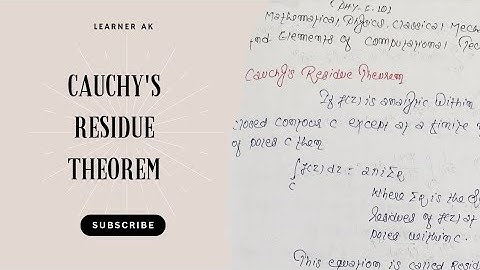 LEARNER AK
CAUCHY'S
RESIDUE
THEOREM
SUBSCRIBE
Mathematical Physics, Classical Mech
and Elements of Computational Tec
Cauchy's Residue Theorem
If f(z) is analytic within
closed contour c except at a finite
of poles c then
∫f(z) dz = 2πiΣR
C
Where ΣR is the
residues of f(z) at
poles within c.
This equation is called Resid